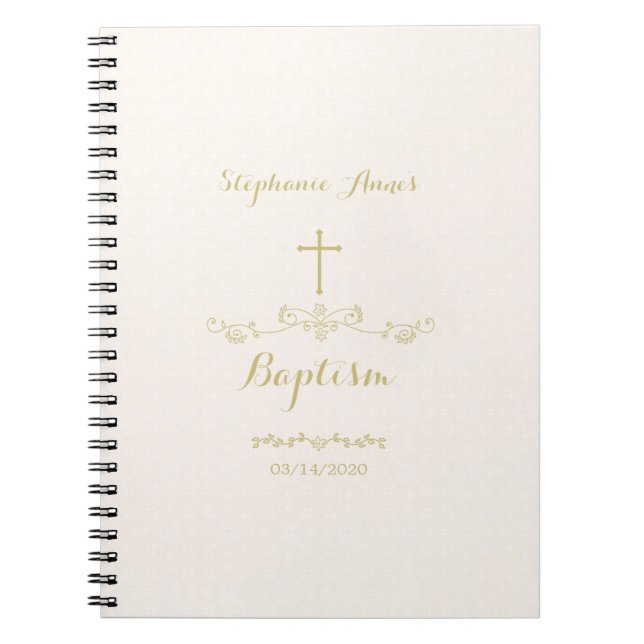 Stephanie Anne's
Baptism
03/14/2020